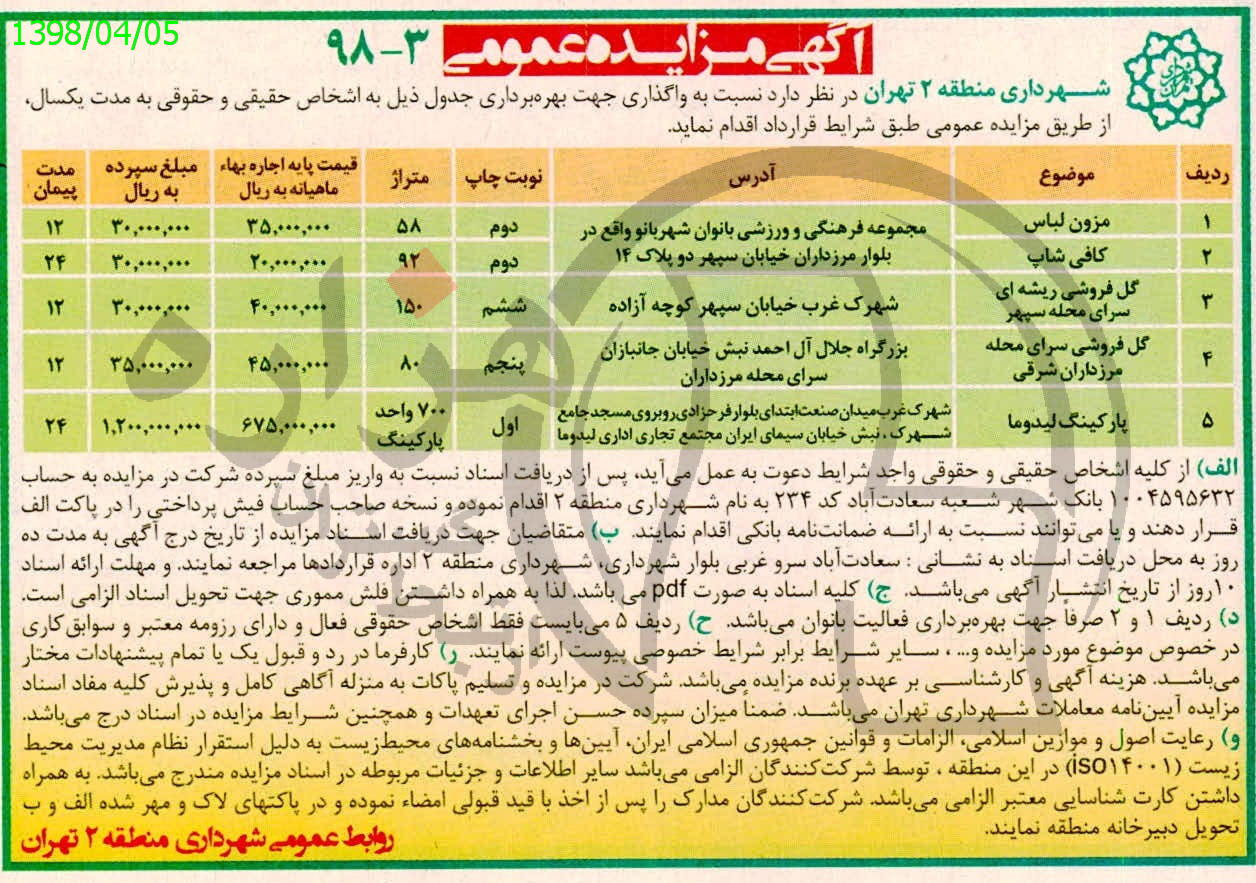 1398/04/05
آگهی مزایده عمومی ۳-۹۸
شهرداری منطقه ۲ تهران در نظر دارد نسبت به واگذاری جهت بهره‌برداری جدول ذیل به اشخاص حقیقی و حقوقی به مدت یکسال،
از طریق مزایده عمومی طبق شرایط قرارداد اقدام نماید.
ردیف موضوع آدرس نوبت چاپ متراژ قیمت پایه اجاره بهاء ماهیانه به ریال مبلغ سپرده به ریال مدت پیمان
۱ مزون لباس مجموعه فرهنگی و ورزشی بانوان شهربانو واقع در دوم ۵۸ ۳۵,۰۰۰,۰۰۰ ۳۰,۰۰۰,۰۰۰ ۱۲
۲ کافی شاپ بلوار مرزداران خیابان سپهر دو پلاک ۱۴ دوم ۹۲ ۲۰,۰۰۰,۰۰۰ ۳۰,۰۰۰,۰۰۰ ۲۴
۳ گل فروشی ریشه ای سرای محله سپهر شهرک غرب خیابان سپهر کوچه آزاده ششم ۱۵۰ ۴۰,۰۰۰,۰۰۰ ۳۰,۰۰۰,۰۰۰ ۱۲
۴ گل فروشی سرای محله مرزداران شرقی بزرگراه جلال آل احمد نبش خیابان جانبازان سرای محله مرزداران پنجم ۸۰ ۴۵,۰۰۰,۰۰۰ ۳۵,۰۰۰,۰۰۰ ۱۲
۵ پارکینگ لیدوما شهرک غرب میدان صنعت ابتدای بلوار فرحزادی روبروی مسجد جامع شهرک، نبش خیابان سیمای ایران مجتمع تجاری اداری لیدوما اول ۷۰۰ واحد پارکینگ ۶۷۵,۰۰۰,۰۰۰ ۱,۲۰۰,۰۰۰,۰۰۰ ۲۴
الف) از کلیه اشخاص حقیقی و حقوقی واجد شرایط دعوت به عمل می‌آید، پس از دریافت اسناد نسبت به واریز مبلغ سپرده شرکت در مزایده به حساب
۱۰۰۴۵۹۵۶۳۲ بانک شهر شعبه سعادت‌آباد کد ۲۳۴ به نام شهرداری منطقه ۲ اقدام نموده و نسخه صاحب حساب فیش پرداختی را در پاکت الف
قرار دهند و یا می‌توانند نسبت به ارائه ضمانت‌نامه بانکی اقدام نمایند. ب) متقاضیان جهت دریافت اسناد مزایده از تاریخ درج آگهی به مدت ده
روز به محل دریافت اسناد به نشانی : سعادت‌آباد سرو غربی بلوار شهرداری، شهرداری منطقه ۲ اداره قراردادها مراجعه نمایند. و مهلت ارائه اسناد
۱۰روز از تاریخ انتشار آگهی می‌باشد. ج) کلیه اسناد به صورت pdf می باشد. لذا به همراه داشتن فلش مموری جهت تحویل اسناد الزامی است.
د) ردیف ۱ و ۲ صرفا جهت بهره‌برداری فعالیت بانوان می‌باشد. ح) ردیف ۵ می‌بایست فقط اشخاص حقوقی فعال و دارای رزومه معتبر و سوابق کاری
در خصوص موضوع مورد مزایده و... ، سایر شرایط برابر شرایط خصوصی پیوست ارائه نمایند. ر) کارفرما در رد و قبول یک یا تمام پیشنهادات مختار
می‌باشد. هزینه آگهی و کارشناسی بر عهده برنده مزایده می‌باشد. شرکت در مزایده و تسلیم پاکات به منزله آگاهی کامل و پذیرش کلیه مفاد اسناد
مزایده آیین‌نامه معاملات شهرداری تهران می‌باشد. ضمناً میزان سپرده حسن اجرای تعهدات و همچنین شرایط مزایده در اسناد درج می‌باشد.
و) رعایت اصول و موازین اسلامی، الزامات و قوانین جمهوری اسلامی ایران، آیین‌ها و بخشنامه‌های محیط‌زیست به دلیل استقرار نظام مدیریت محیط
زیست (iSO۱۴۰۰۱) در این منطقه ، توسط شرکت‌کنندگان الزامی می‌باشد سایر اطلاعات و جزئیات مربوطه در اسناد مزایده مندرج می‌باشد. به همراه
داشتن کارت شناسایی معتبر الزامی می‌باشد. شرکت‌کنندگان مدارک را پس از اخذ با قید قبولی امضاء نموده و در پاکتهای لاک و مهر شده الف و ب
تحویل دبیرخانه منطقه نمایند.
روابط عمومی شهرداری منطقه ۲ تهران
هزاره